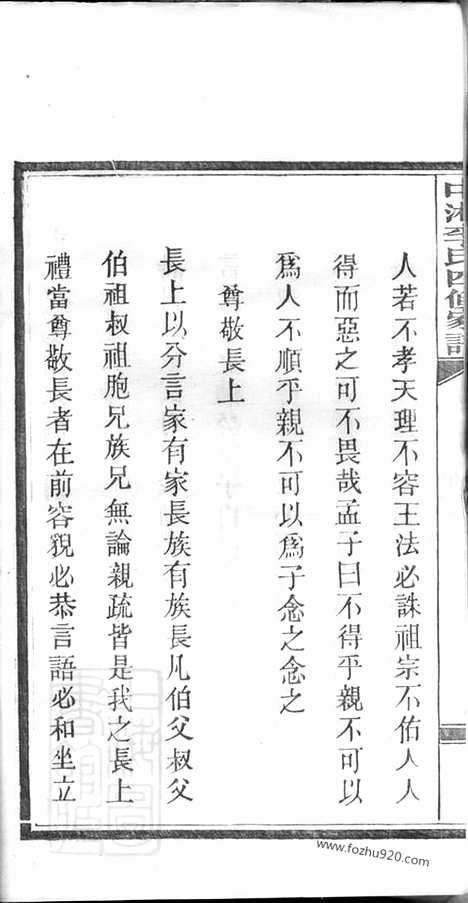 中湘李氏四修家譜
人若不孝天理不容王法必誅祖宗不佑人人
得而惡之可不畏哉孟子曰不得乎親不可以
爲人不順乎親不可以爲子念之念之
尊敬長上
長上以分言家有家長族有族長凡伯父叔父
伯祖叔祖胞兄族兄無論親疏皆是我之長上
禮當尊敬長者在前容貌必恭言語必和坐立
www.fozhu920.com